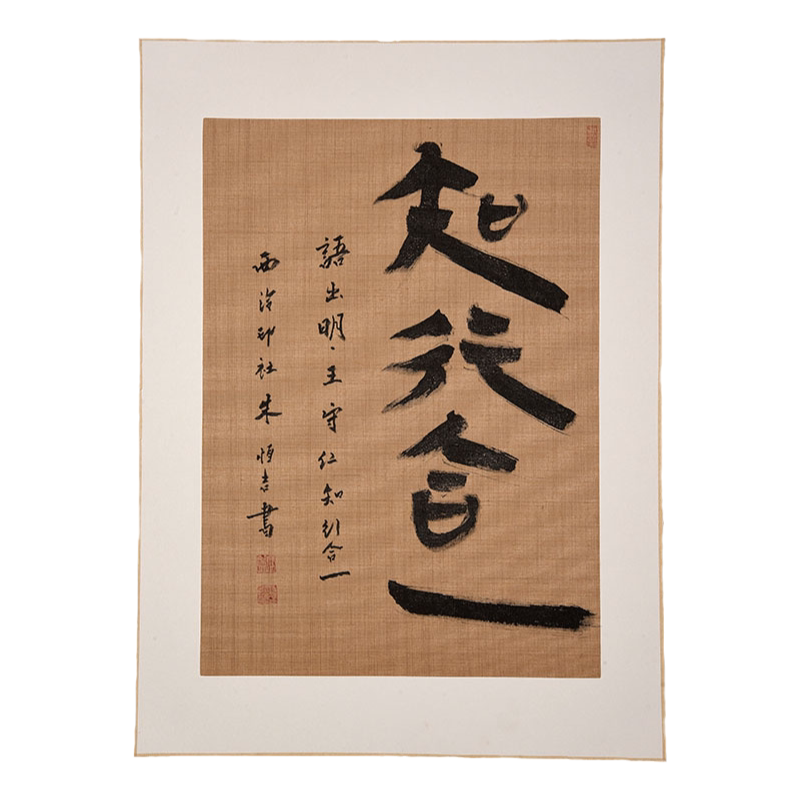 知行合一
語出明、王守仁知行合一
西泠印社朱恒吉書